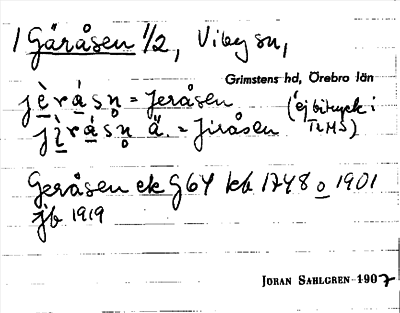 1 Gäråsen 1/2, Viby sn,
Grimstens hd, Örebro län
jèråsn̥ = Jeråsen (ej bitryck i
jìråsn̥ ä. = Jiråsen TLMS)
Geråsen ek G64 kb 1748 o 1901
jb 1919
JÖRAN SAHLGREN 1907